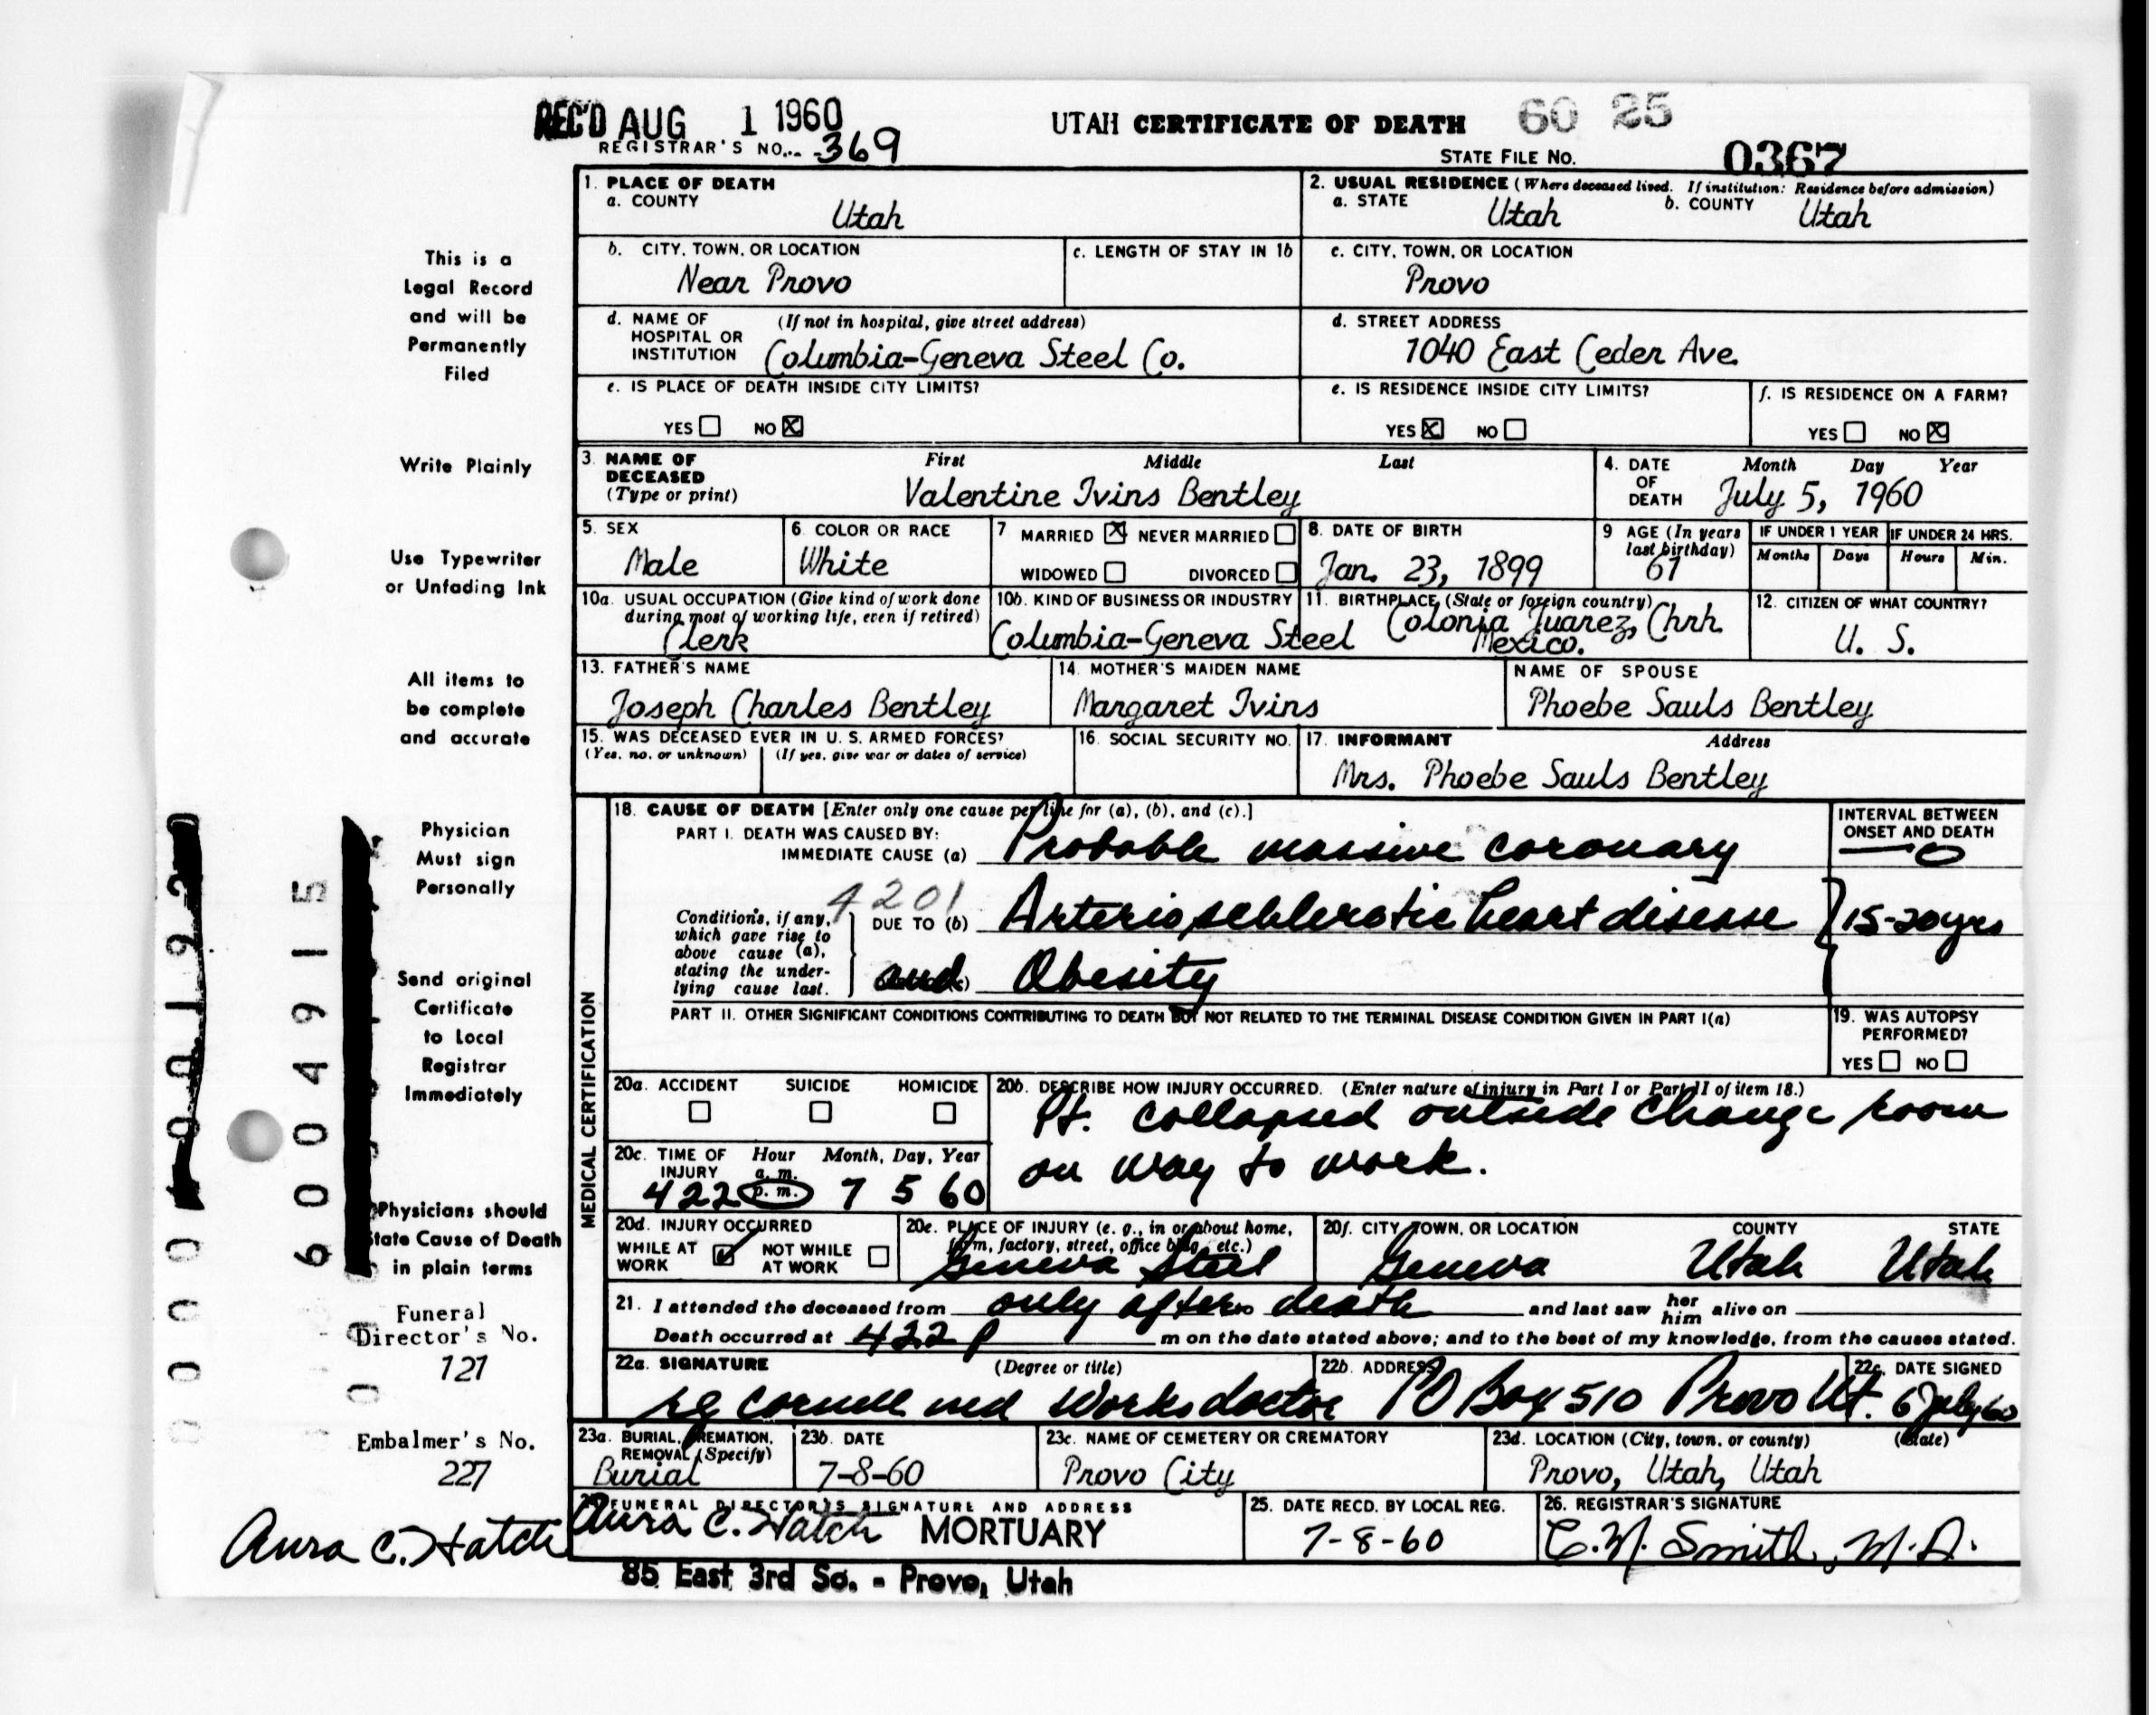 REC'D AUG 1 1960
UTAH CERTIFICATE OF DEATH 60 25
REGISTRAR'S NO. 369
STATE FILE No. 0367
1. PLACE OF DEATH
a. COUNTY
Utah
2. USUAL RESIDENCE (Where deceased lived. If institution: Residence before admission)
a. STATE Utah b. COUNTY Utah
b. CITY, TOWN, OR LOCATION
Near Provo
c. LENGTH OF STAY IN 1b
c. CITY, TOWN, OR LOCATION
Provo
d. NAME OF HOSPITAL OR INSTITUTION (If not in hospital, give street address)
Columbia-Geneva Steel Co.
d. STREET ADDRESS
1040 East Ceder Ave.
e. IS PLACE OF DEATH INSIDE CITY LIMITS?
YES NO X
e. IS RESIDENCE INSIDE CITY LIMITS?
YES X NO
f. IS RESIDENCE ON A FARM?
YES NO X
3. NAME OF DECEASED (Type or print) First Middle Last
Valentine Ivins Bentley
4. DATE OF DEATH Month Day Year
July 5, 1960
5. SEX
Male
6. COLOR OR RACE
White
7 MARRIED X NEVER MARRIED
WIDOWED DIVORCED
8. DATE OF BIRTH
Jan. 23, 1899
9 AGE (In years last birthday)
61
IF UNDER 1 YEAR
Months Days
IF UNDER 24 HRS.
Hours Min.
10a. USUAL OCCUPATION (Give kind of work done during most of working life, even if retired)
Clerk
10b. KIND OF BUSINESS OR INDUSTRY
Columbia-Geneva Steel
11. BIRTHPLACE (State or foreign country)
Colonia Juarez, Chrh.
Mexico.
12. CITIZEN OF WHAT COUNTRY?
U. S.
13. FATHER'S NAME
Joseph Charles Bentley
14. MOTHER'S MAIDEN NAME
Margaret Ivins
NAME OF SPOUSE
Phoebe Sauls Bentley
15. WAS DECEASED EVER IN U. S. ARMED FORCES?
(Yes, no, or unknown) (If yes, give war or dates of service)
16. SOCIAL SECURITY NO.
17. INFORMANT Address
Mrs. Phoebe Sauls Bentley
MEDICAL CERTIFICATION
18. CAUSE OF DEATH [Enter only one cause per line for (a), (b), and (c).]
PART I. DEATH WAS CAUSED BY:
IMMEDIATE CAUSE (a) Probable massive coronary
INTERVAL BETWEEN ONSET AND DEATH
0
4201
Conditions, if any, which gave rise to above cause (a), stating the underlying cause last.
DUE TO (b) Arterioschlerotic heart disease
15-20 yrs
and (c) Obesity
PART II. OTHER SIGNIFICANT CONDITIONS CONTRIBUTING TO DEATH BUT NOT RELATED TO THE TERMINAL DISEASE CONDITION GIVEN IN PART I(a)
19. WAS AUTOPSY PERFORMED?
YES NO
20a. ACCIDENT SUICIDE HOMICIDE
20b. DESCRIBE HOW INJURY OCCURRED. (Enter nature of injury in Part I or Part II of item 18.)
Pt. collapsed outside change room
on way to work.
20c. TIME OF INJURY Hour a. m. p. m. Month, Day, Year
422 7 5 60
20d. INJURY OCCURRED
WHILE AT WORK NOT WHILE AT WORK
20e. PLACE OF INJURY (e. g., in or about home, farm, factory, street, office bldg., etc.)
Geneva Steel
20f. CITY, TOWN, OR LOCATION COUNTY STATE
Geneva Utah Utah
21. I attended the deceased from only after death and last saw her him alive on
Death occurred at 422 P m on the date stated above; and to the best of my knowledge, from the causes stated.
22a. SIGNATURE (Degree or title)
Cornell md Works doctor
22b. ADDRESS
PO Box 510 Provo Ut.
22c. DATE SIGNED
6 July 60
23a. BURIAL, CREMATION, REMOVAL (Specify)
Burial
23b. DATE
7-8-60
23c. NAME OF CEMETERY OR CREMATORY
Provo City
23d. LOCATION (City, town, or county) (State)
Provo, Utah, Utah
FUNERAL DIRECTOR'S SIGNATURE AND ADDRESS
Aura C. Hatch MORTUARY
85 East 3rd So. - Provo, Utah
25. DATE RECD. BY LOCAL REG.
7-8-60
26. REGISTRAR'S SIGNATURE
C. M. Smith, M. D.
This is a
Legal Record
and will be
Permanently
Filed
Write Plainly
Use Typewriter
or Unfading Ink
All items to
be complete
and accurate
Physician
Must sign
Personally
Send original
Certificate
to Local
Registrar
Immediately
Physicians should
State Cause of Death
in plain terms
Funeral
Director's No.
121
Embalmer's No.
227
Aura C. Hatch
6004915